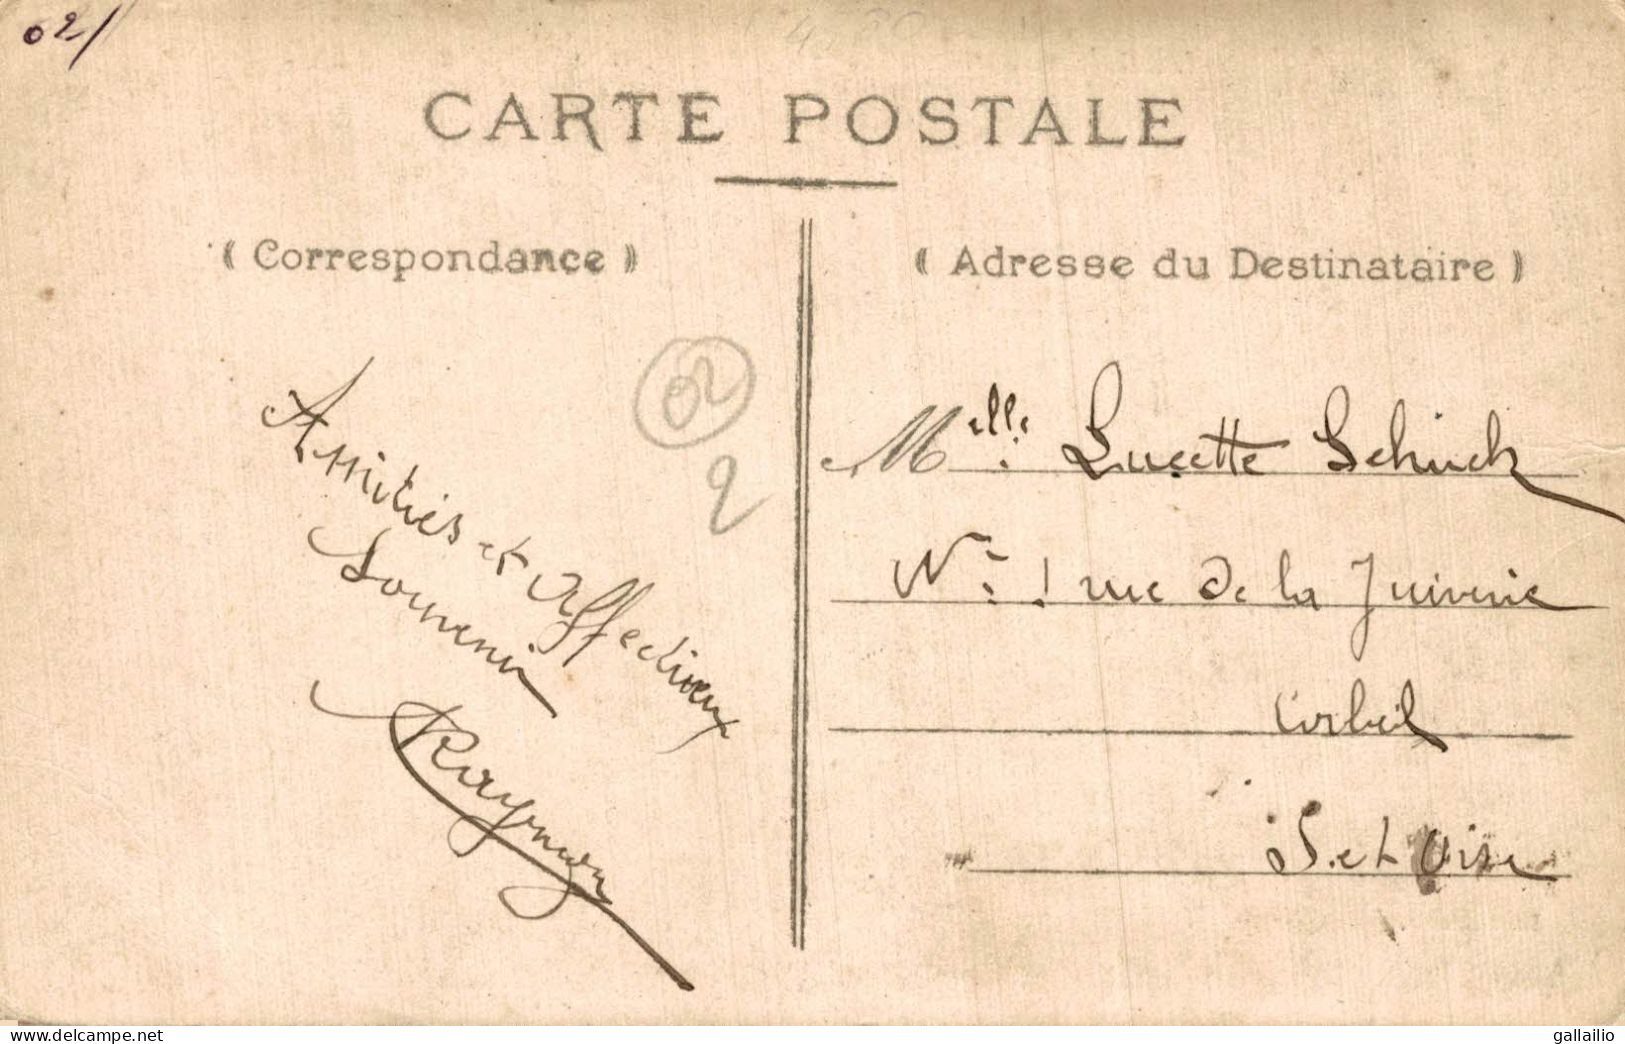 02/
CARTE POSTALE
( Correspondance )
( Adresse du Destinataire )
02
2
Amitiés et affectueux
Souvenir
Raymon
Melle Lucette Schuck
N° 1 rue de la Juiverie
Corbeil
S. et Oise
www.delcampe.net
gallailio